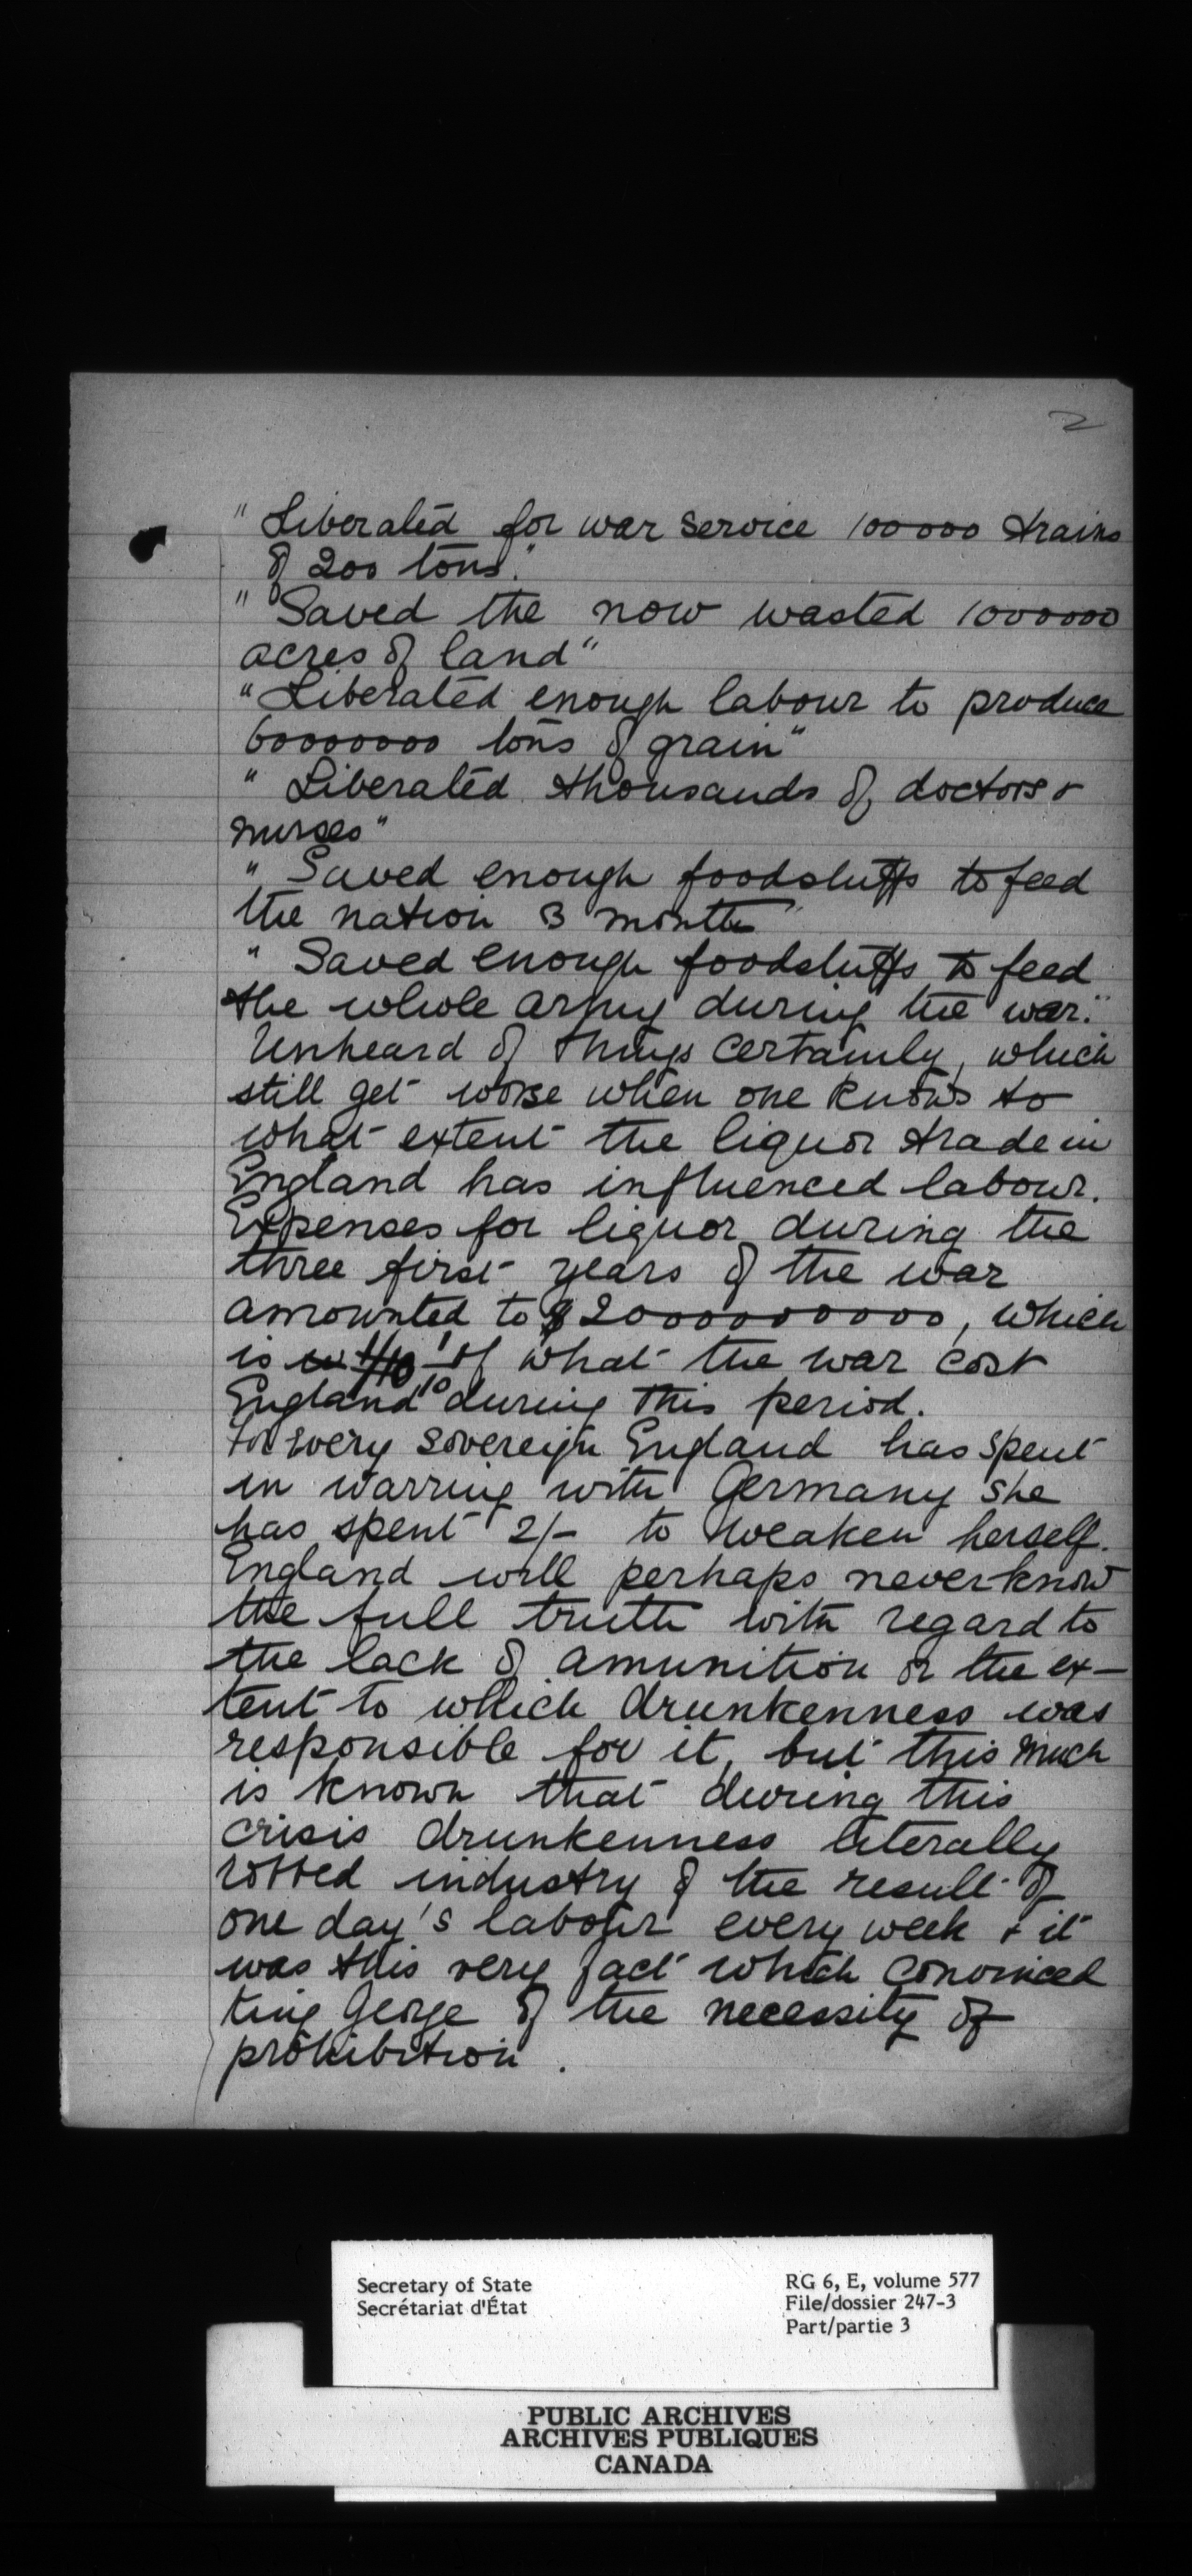 2
"Liberated for war service 100000 trains
of 200 tons."
"Saved the now wasted 1000000
acres of land"
"Liberated enough labour to produce
60000000 tons of grain"
"Liberated thousands of doctors &
nurses"
"Saved enough foodstuffs to feed
the nation 3 months"
"Saved enough foodstuffs to feed
the whole army during the war."
Unheard of things certainly, which
still get worse when one knows to
what extent the liquor trade in
England has influenced labour.
Expenses for liquor during the
three first years of the war
amounted to $20000000000, which
is 1/10 of what the war cost
England during this period.
For every sovereign England has spent
in warring with Germany she
has spent 2/- to weaken herself.
England will perhaps never know
the full truth with regard to
the lack of amunition or the ex-
tent to which drunkenness was
responsible for it, but this much
is known that during this
crisis drunkenness literally
robbed industry of the result of
one day's labour every week & it
was this very fact which convinced
King George of the necessity of
prohibition.
Secretary of State
Secrétariat d'État
RG 6, E, volume 577
File/dossier 247-3
Part/partie 3
PUBLIC ARCHIVES
ARCHIVES PUBLIQUES
CANADA